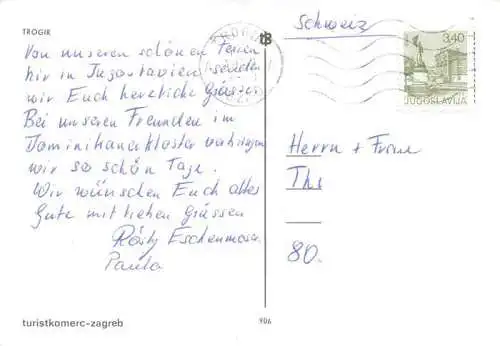 TROGIR
Von unseren schönen Ferien
hir in Jugoslavien senden
wir Euch herzliche Grüsse
Bei unseren Freunden im
Dominikanerkloster verbringen
wir so schön Tage.
Wir wünschen Euch alles
Gute mit lieben Grüssen
Rösly Eschenmoser
Paula
turistkomerc-zagreb
906
Schweiz
3,40
JUGOSLAVIJA
Herrn + Frau
Th
80.